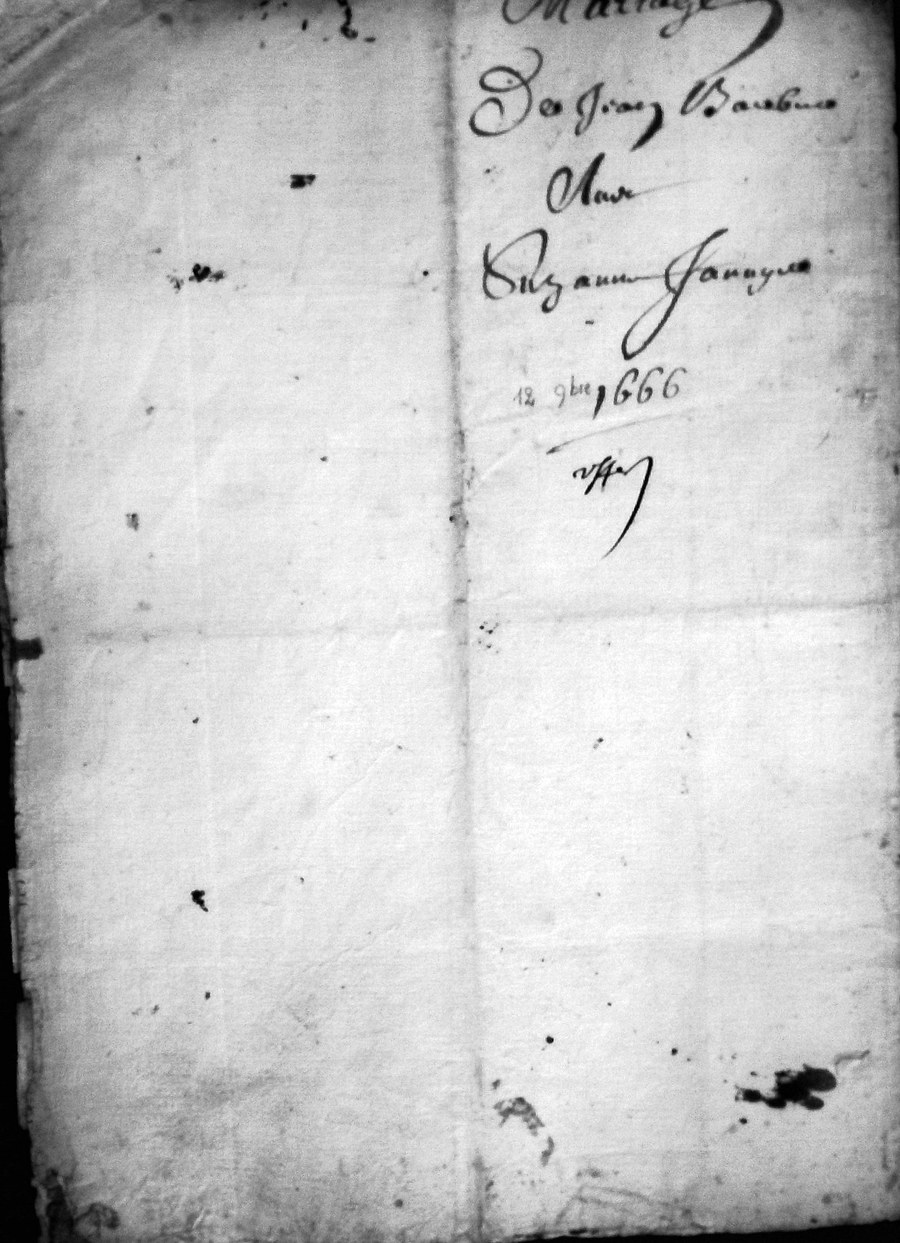 Mariage
De Jean Barebme
Avec
Suzanne Jannyne
12 9bre 1666